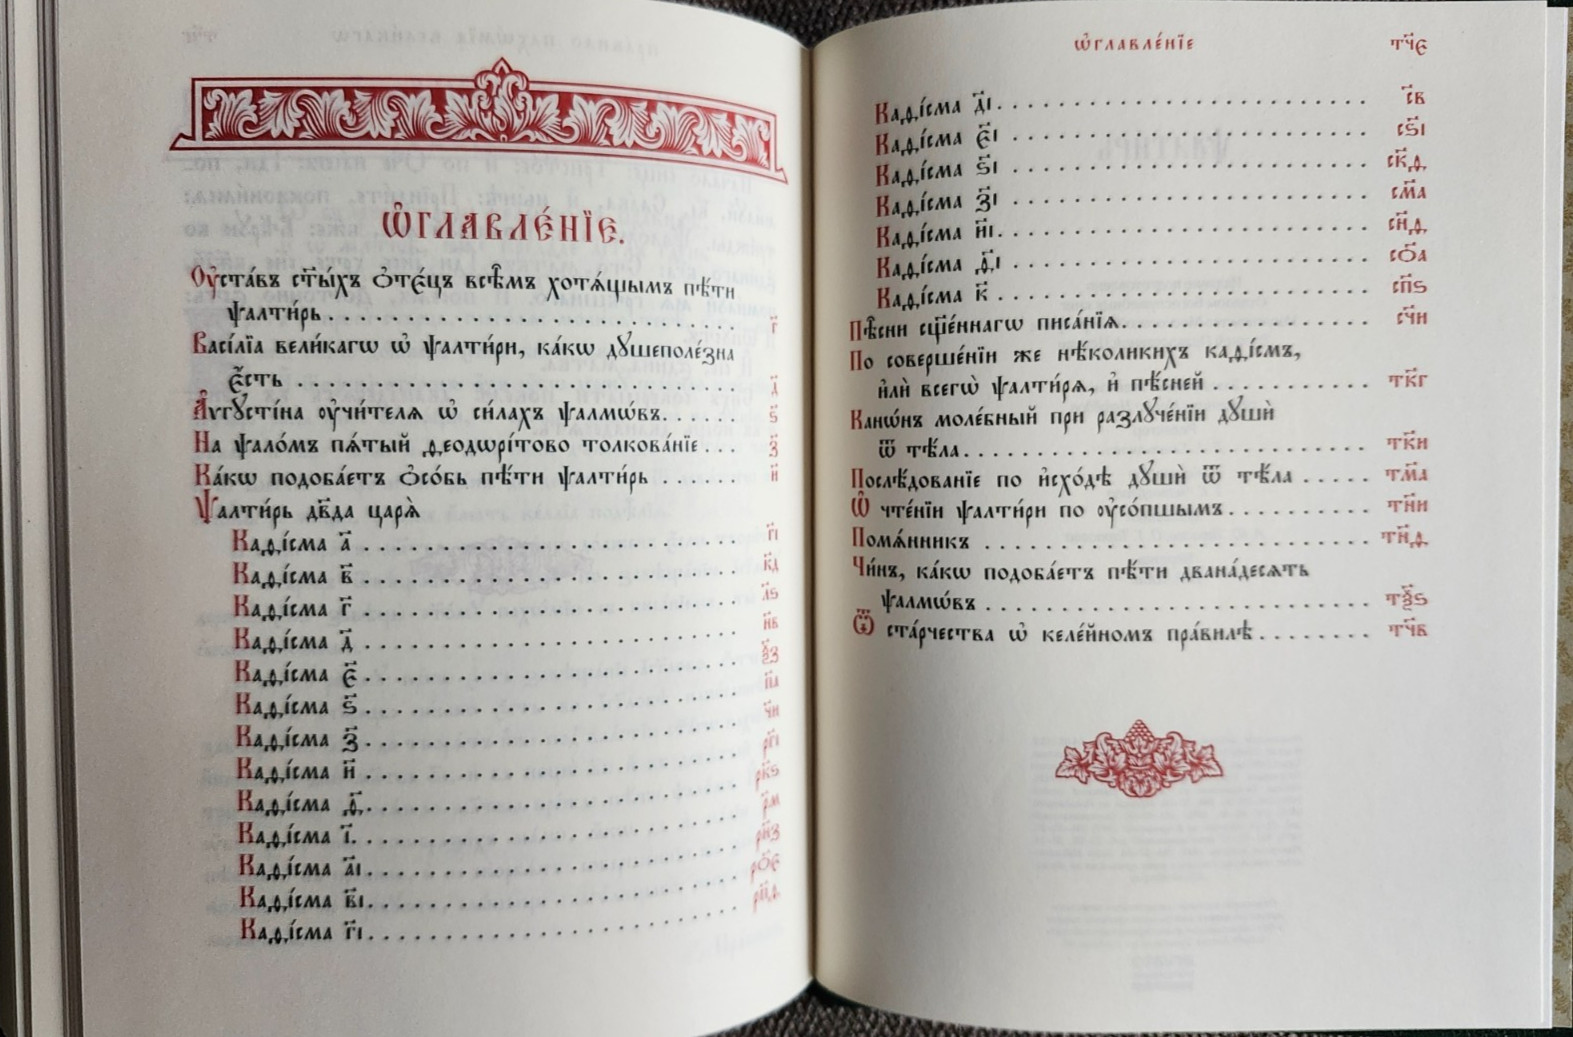 Ѡ҆ГЛАВЛЕ́НЇЕ.
Оу҆ста́въ ст҃ы́хъ ѻ҆тє́цъ всѣ̑мъ хотѧ́щымъ пѣ́ти
ѱалти́рь. г҃
Васі́лїа вели́кагѡ ѡ҆ ѱалти́ри, ка́кѡ дꙋшеполе́зна
є҆́сть д҃
А҆ѵгꙋсті́на оу҆чи́телѧ ѡ҆ си́лахъ ѱалмѡ́въ. ѕ҃
На ѱало́мъ пѧ́тый ѳеодѡрі́тово толкова́нїе. з҃
Ка́кѡ подоба́етъ ѻ҆со́бь пѣ́ти ѱалти́рь и҃
Ѱалти́рь дв҃да царѧ̀
Каѳі́сма а҃ гі҃
Каѳі́сма в҃ кд҃
Каѳі́сма г҃ лѕ҃
Каѳі́сма д҃ нв҃
Каѳі́сма є҃ ѯз҃
Каѳі́сма ѕ҃ па҃
Каѳі́сма з҃ чи҃
Каѳі́сма и҃ ргі҃
Каѳі́сма ѳ҃ ркѕ҃
Каѳі́сма і҃ рм҃
Каѳі́сма аі҃ рнз҃
Каѳі́сма ві҃ роє҃
Каѳі́сма гі҃
ѡ҆главле́нїе тч҃є
Каѳі́сма ді҃ св҃
Каѳі́сма єі҃ сѕ҃і
Каѳі́сма ѕі҃ ск҃ѳ
Каѳі́сма зі҃ см҃а
Каѳі́сма иі҃ сн҃ѳ
Каѳі́сма ѳі҃ со҃а
Каѳі́сма к҃ сп҃ѕ
Пѣ̑сни сщ҃е́ннагѡ писа́нїѧ. сч҃и
По соверше́нїи же нѣ́коликихъ каѳі́смъ,
и҆лѝ всегѡ̀ ѱалти́рѧ, и҆ пѣ́сней тк҃г
Канѡ́нъ моле́бный при разлꙋче́нїи дꙋшѝ
ѿ тѣ́ла. тк҃и
Послѣ́дованїе по и҆схо́дѣ дꙋшѝ ѿ тѣ́ла тм҃а
Ѡ҆ чте́нїи ѱалти́ри по оу҆со́пшымъ. тн҃и
Помѧ́нникъ тн҃ѳ
Чи́нъ, ка́кѡ подоба́етъ пѣ́ти двана́десѧть
ѱалмѡ́въ тѯ҃ѕ
Ѿ ста́рчества ѡ҆ келе́йномъ пра́вилѣ. тч҃в